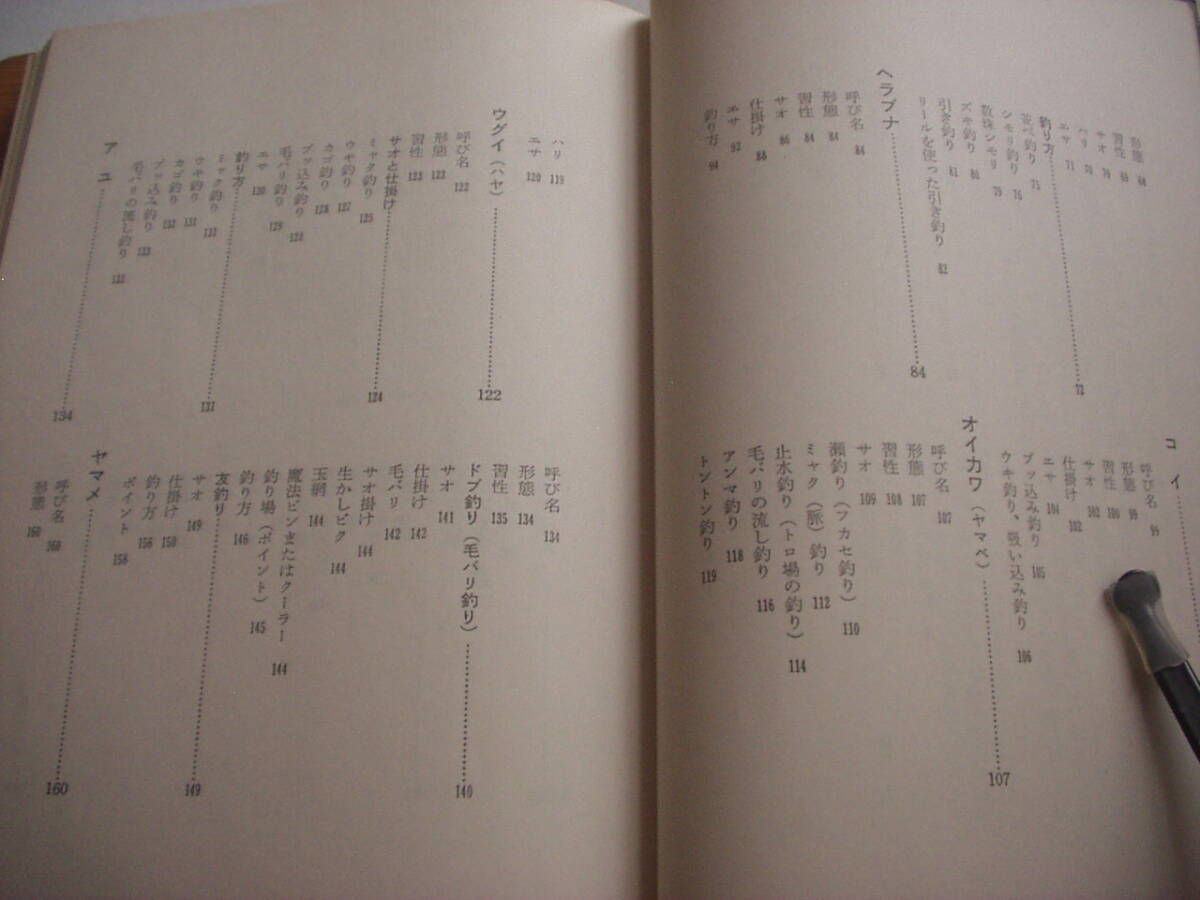 形態 68
習性 69
サオ 70
ハリ 70
エサ 71
釣り方……73
並べ釣り 75
シモリ釣り 76
数珠シモリ 79
ズキ釣り 80
引き釣り 81
リールを使った引き釣り 82
ヘラブナ……84
呼び名 84
形態 84
習性 84
サオ 86
仕掛け 88
エサ 92
釣り方 94
コイ……
呼び名 99
形態 99
習性 100
サオ 102
仕掛け 102
エサ 104
ブッ込み釣り 105
ウキ釣り、吸い込み釣り 106
オイカワ(ヤマベ)……107
呼び名 107
形態 107
習性 108
サオ 109
瀬釣り(フカセ釣り) 110
ミャク(脈)釣り 112
止水釣り(トロ場の釣り) 114
毛バリの流し釣り 116
アンマ釣り 118
トントン釣り 119
ハリ 119
エサ 120
ウグイ(ハヤ)……122
呼び名 122
形態 122
習性 123
サオと仕掛け……124
ミャク釣り 125
ウキ釣り 127
カゴ釣り 128
ブッ込み釣り 128
毛バリ釣り 129
エサ 130
釣り方……131
ミャク釣り 131
ウキ釣り 131
カゴ釣り 132
ブッ込み釣り 133
毛バリの流し釣り 133
アユ……134
呼び名 134
形態 134
習性 135
ドブ釣り(毛バリ釣り)……140
サオ 141
仕掛け 142
毛バリ 142
サオ掛け 144
生かしビク 144
玉網 144
魔法ビンまたはクーラー 144
釣り場(ポイント) 145
釣り方 146
友釣り……149
サオ 149
仕掛け 150
釣り方 156
ポイント 158
ヤマメ……160
呼び名 160
形態 160